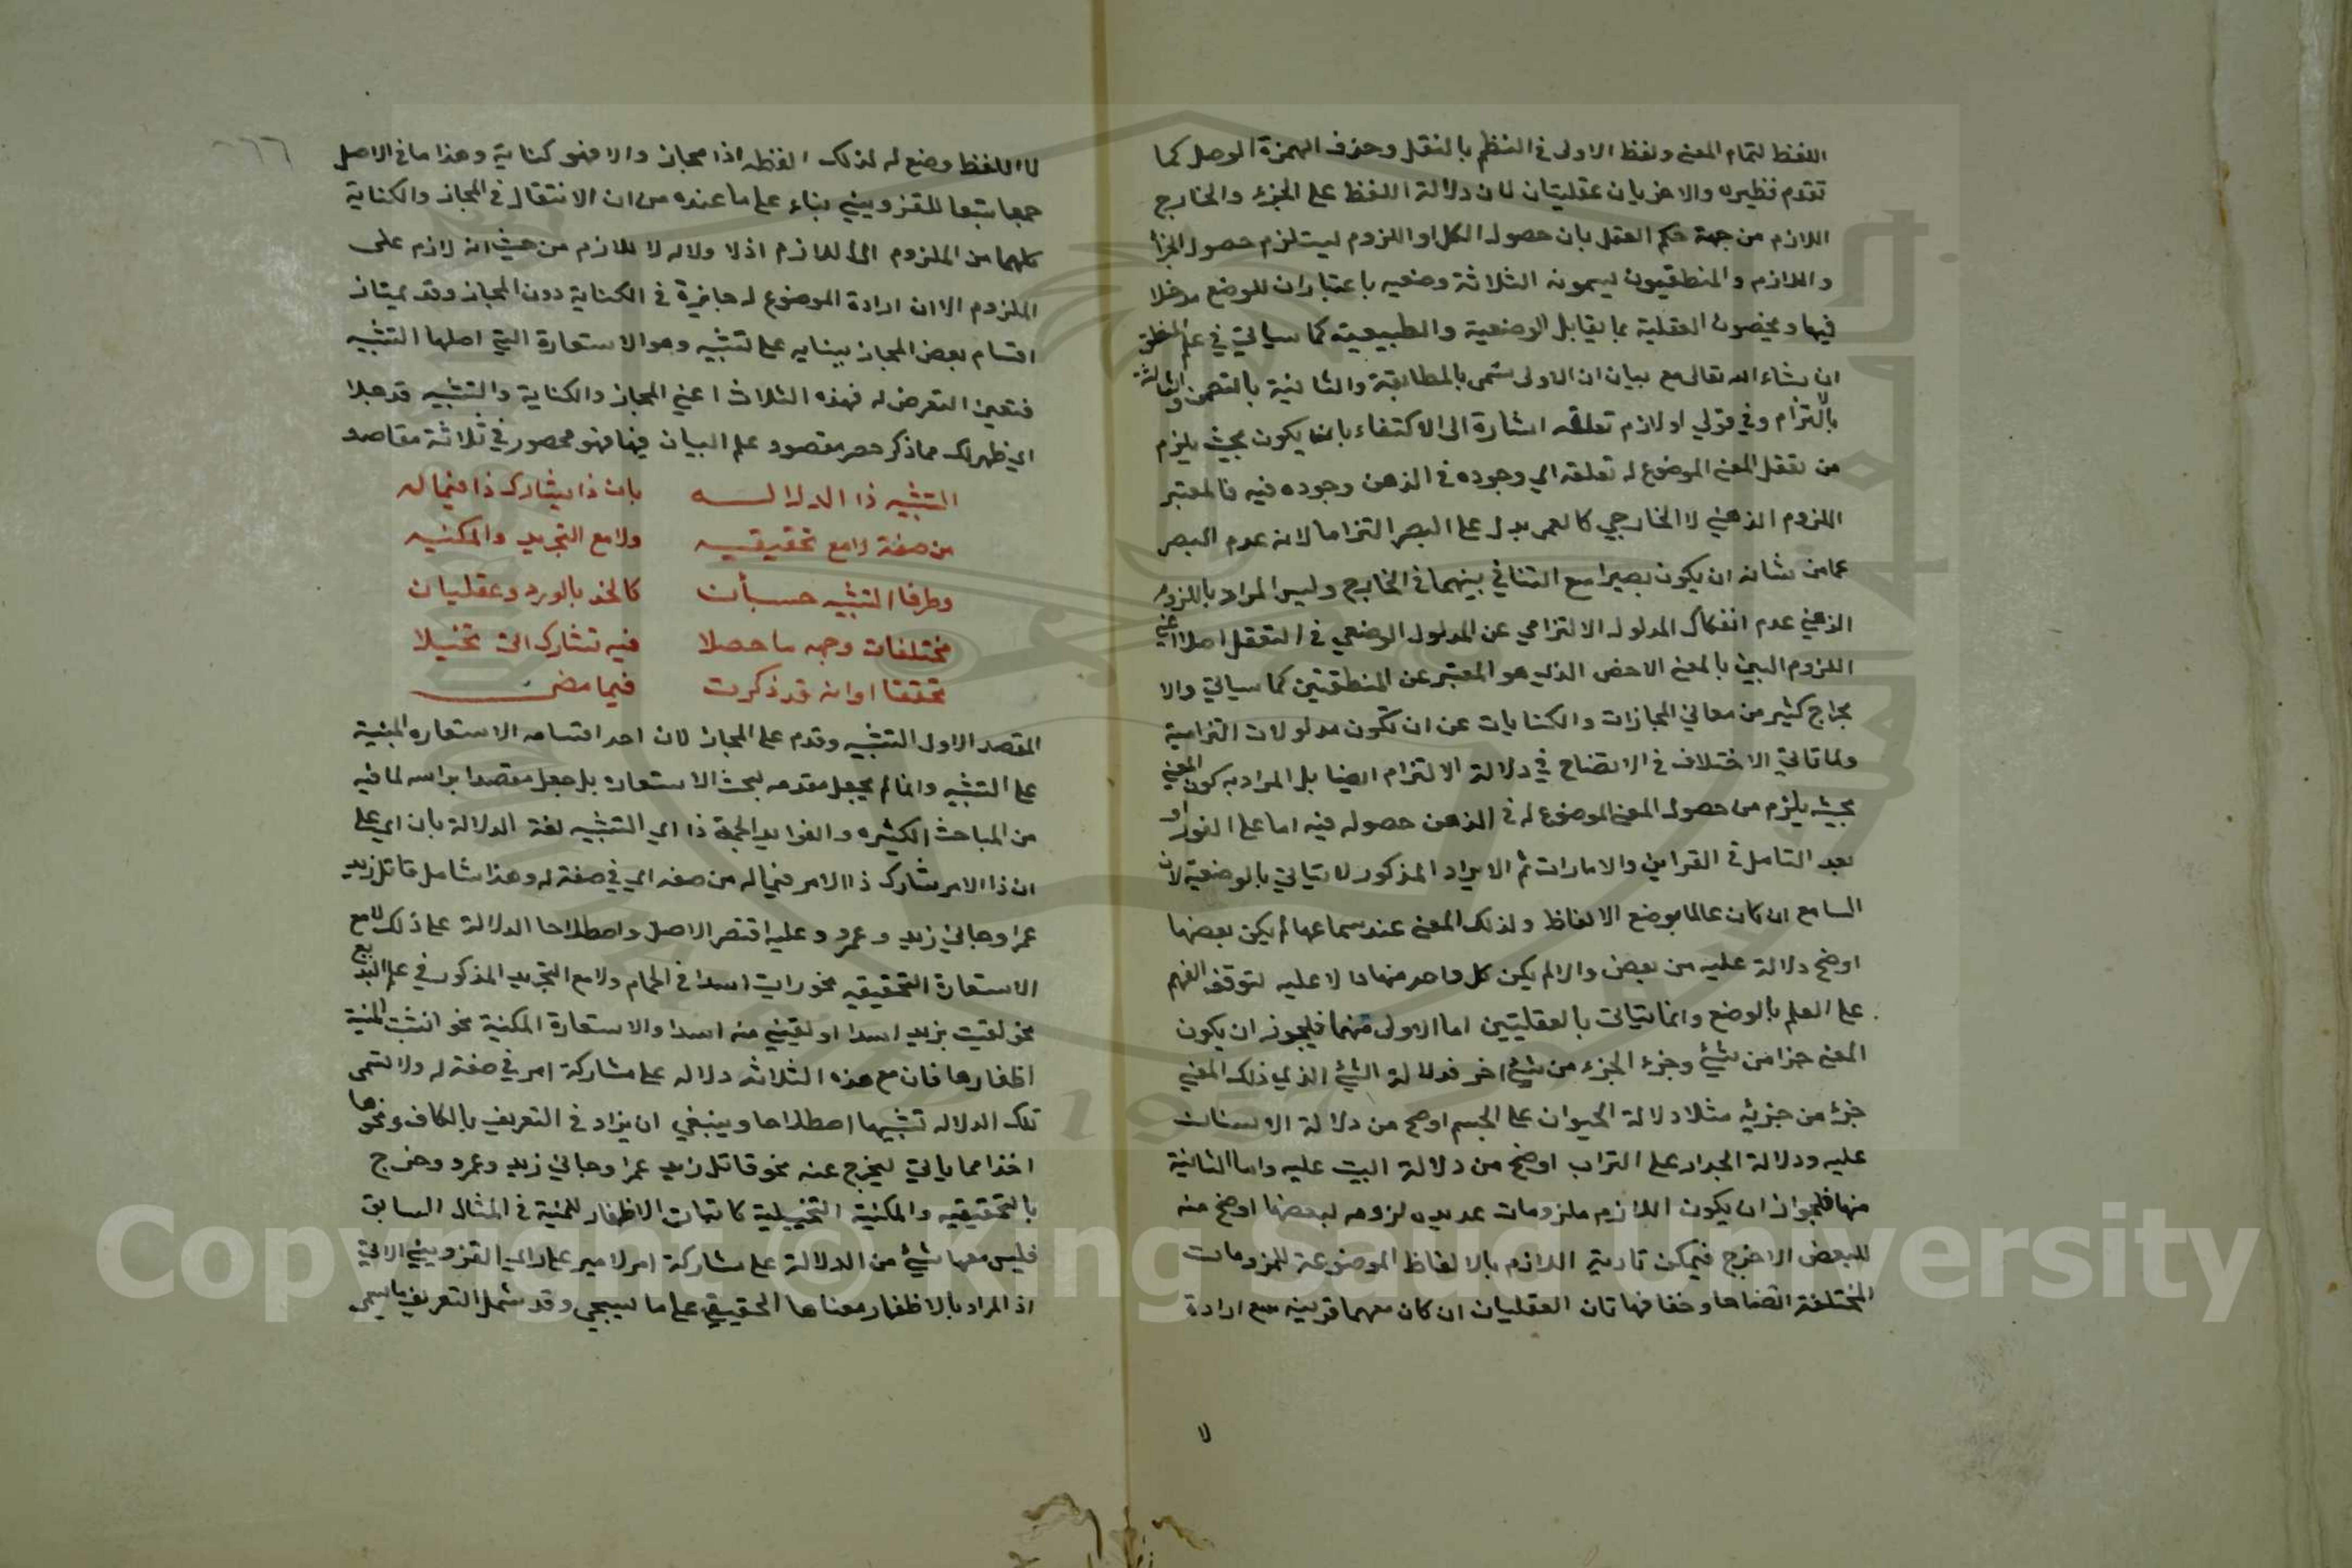 اللفظ لتمام المعنى ولفظ الاولى في النظم بالنقل وحذف الهمزة الوصل كما
تقدم نظيره والاخريان عقليتان لان دلالة اللفظ على الجزء والخارج
اللازم من جهة حكم العقل بان حصول الكل او اللزوم ليستلزم حصول الجزأ
واللازم والمنطقيون ليسمونه الثلاثة وضعيه باعتبار ان للوضع مدخلا
فيها ويخصون العقلية بما يقابل الوضعية والطبيعية كما سياتي في علم المنطق
ان شاء الله تعالى مع بيان ان الاولى تسمى بالمطابقة والثانية بالتضمن والثالثة
بالتزام وفي قولي او لازم تعلقه اشارة الى الاكتفاء بانما يكون بحيث يلزم
من تعقل المعنى الموضوع له تعلقه اي وجوده في الذهن وجوده فيه فالمعتبر
اللزوم الذهني لا الخارجي كالعمى يدل على البصر التزاما لانه عدم البصر
عما من شانه ان يكون بصيرا مع التنافي بينهما في الخارج وليس المراد باللزوم
الذهني عدم انفكاك المدلول الالتزامي عن المدلول الوضعي في التعقل اصلا اعني
اللزوم البين بالمعنى الاخص الذي هو المعتبر عن المنطقيين كما سياتي والا
بحراج كثير من معاني المجازات والكنايات عن ان تكون مدلولات التزامية
ولما تاتي الاختلاف في الاتضاح في دلالة الالتزام ايضا بل المراد به كون المعنى
بحيث يلزم من حصول المعنى الموضوع له في الذهن حصوله فيه اما على الفور او
بعد التامل في القراين والامارات ثم الايراد المذكور لا يتاتي بالوضعية لان
السامع ان كان عالما بوضع الالفاظ ولذلك المعنى عند سماعها لم يكن بعضها
اوضح دلالة عليه من بعض والا لم يكن كل واحد منها دالا عليه لتوقف الفهم
على العلم بالوضع وانما يتاتى بالعقليتين اما الاولى منهما فليجوز ان يكون
المعنى جزا من شيئ وجزء الجزء من شيئ اخر فدلالة الشيئ الذي ذلك المعنى
جزء من جزئه مثلا دلالة الحيوان على الجسم اوضح من دلالة الانسان
عليه ودلالة الجدار على التراب اوضح من دلالة البيت عليه واما الثانية
منها فلجواز ان يكون اللازم ملزومات عديده لزومه لبعضها اوضح منه
للبعض الاخرج فيمكن تادية اللازم بالالفاظ الموضوعة للمزومات
المختلفة اتضاحا وخفا فهاتان العقليان ان كان معهما قرينه مع ارادة
لا
لا اللفظ وضع له لذلك الفظه اذا مجاز والا فهو كناية وهذا ما في الاصل
جميعا تبعا للقزويني بناء على ما عنده من ان الانتقال في المجاز والكناية
كلهما من الملزوم الى اللازم اذ لا ولاله لا للازم من حيث انه لازم على
الملزوم الا ان ارادة الموضوع له جايزة في الكناية دون المجاز وقد يمتاز
اقسام بعض المجاز ببنايه على تشبيه وهو الاستعارة التي اصلها التشبيه
فتعين التعرض له فهذه الثلاث اعني المجاز والكناية والتشبيه قد جلا
اي ظهر لك مما ذكر حصر مقصود علم البيان فيها فهو محصور في ثلاثة مقاصد
التشبيه ذا الدلالــه بان ذا يشارك ذا فيما له
من صفة لا مع تحقيقيــه ولا مع التجريد والمكنيه
وطرفا التشبيه حسـيأن كالخد بالورد وعقليان
مختلفان وجهه ما حصلا فيه تشارك اتى تخيلا
تحققا اوانه قد ذكرت فيما مضى
المقصد الاول التشبيه وقدم على المجاز لان احد اقسامه الاستعاره المبنية
على التشبيه وانما لم يجعل مقدمه لبحث الاستعاره بل جعل مقصدا براسه لما فيه
من المباحث الكثيره والفوايد الجمة ذا اي التشبيه لغة الدلالة بان اي على
ان ذا الامر شارك ذا الامر فيما له من صفه اي في صفة له وهذا شامل قاتل زيد
عمرا وجاني زيد وعمرو وعليه اقتصر الاصل واصطلاحا الدلالة على ذلك لا مع
الاستعارة التحقيقيه نحو رايت اسدا في الحمام ولا مع التجريد المذكور في علم البديع
نحو لقيت بزيد اسدا او لقيني منه اسدا والاستعارة المكنية نحو انشبت المنية
اظفارها فان مع هذه الثلاثه دلاله على مشاركة امر في صفة له ولا تسمى
تلك الدلاله تشبيها اصطلاحا وينبغي ان يزاد في التعريف بالكاف ونحوها
اخذا مما ياتي ليخرج عنه نحو قاتل زيد عمرا وجاني زيد وعمرو وخرج
بالتحقيقيه والمكنية التخييلية كاثبات الاظفار للمنية في المثال السابق
فليس معها شيئ من الدلالة على مشاركة امر لا مير على راي القزويني الاتي
اذ المراد بالاظفار معناها الحقيقي على ما سيجي وقد شمل التعريف ما يسمى
Copyright © King Saud University
1957